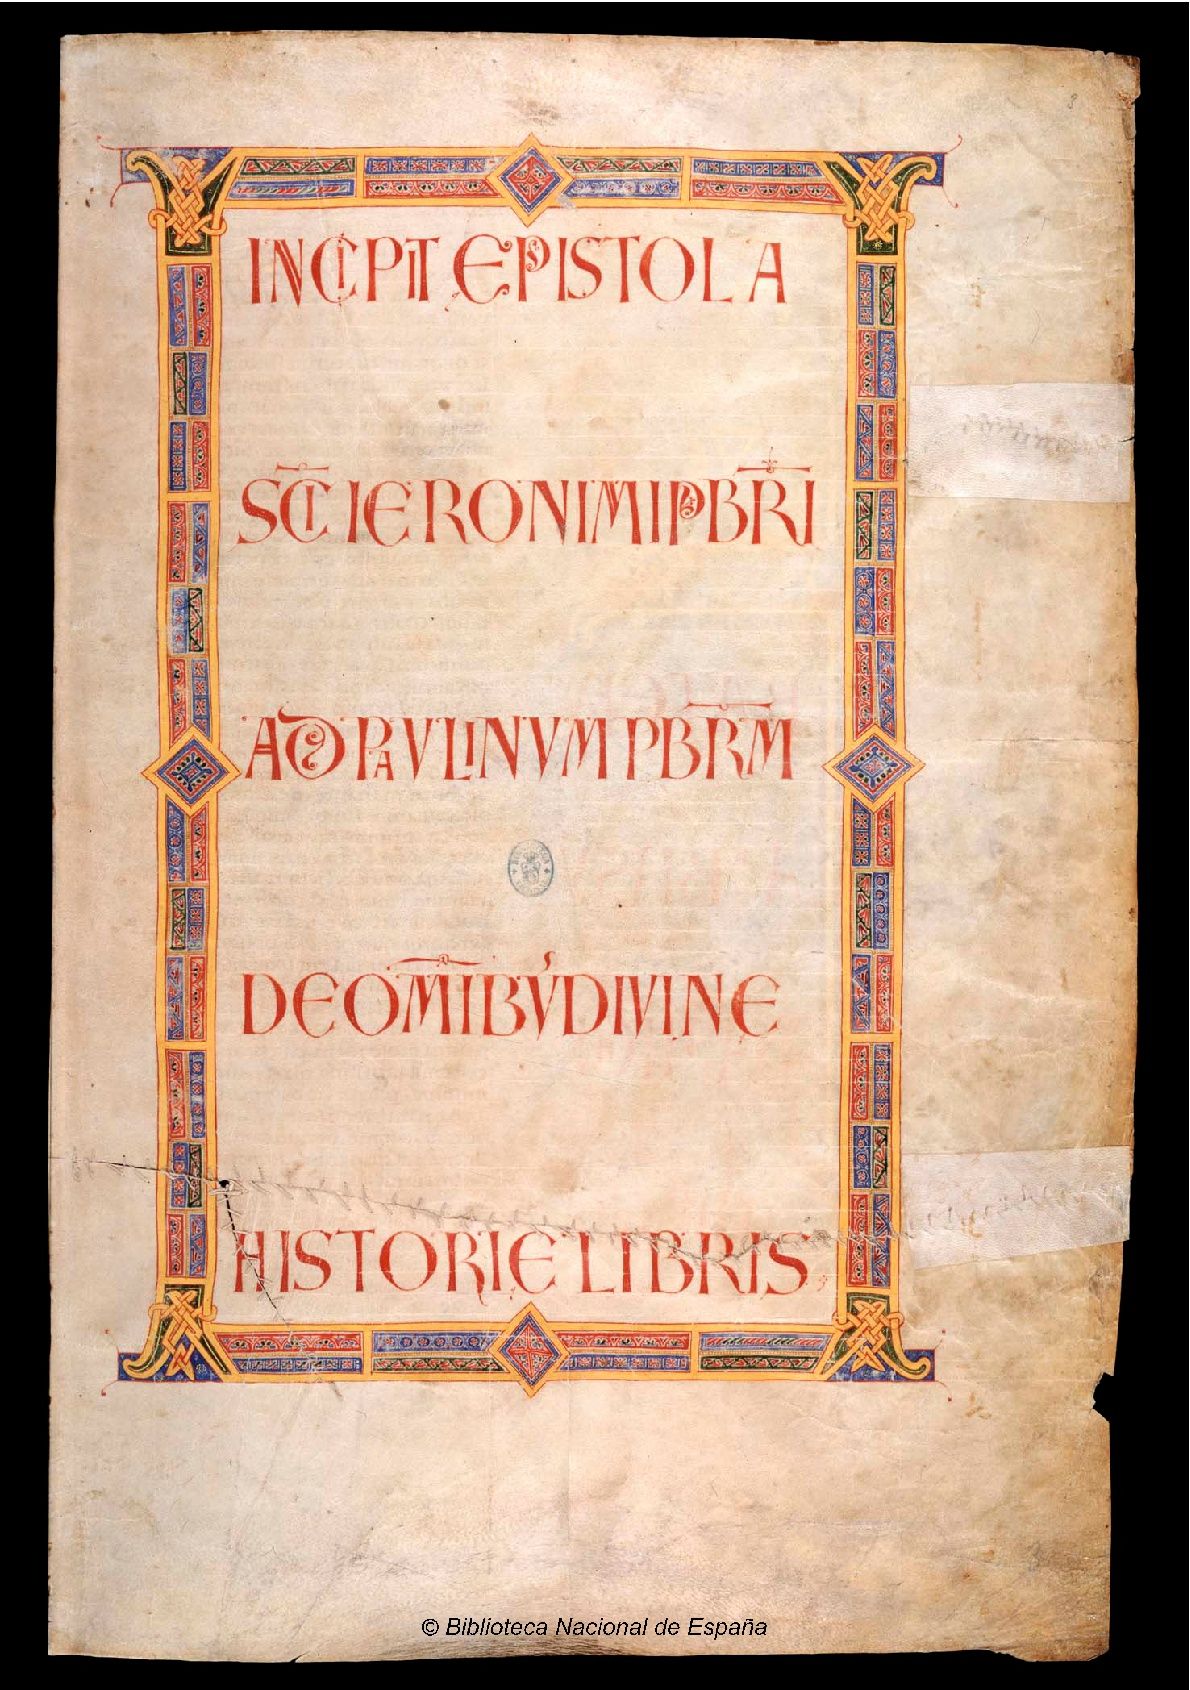 3
INCIPIT EPISTOLA
SC̅I IERONIMI PBR̅I
AD PAVLINVM PBR̅M
DE OM̅IBVꝰ DIVINE
HISTORIE LIBRIS,
© Biblioteca Nacional de España